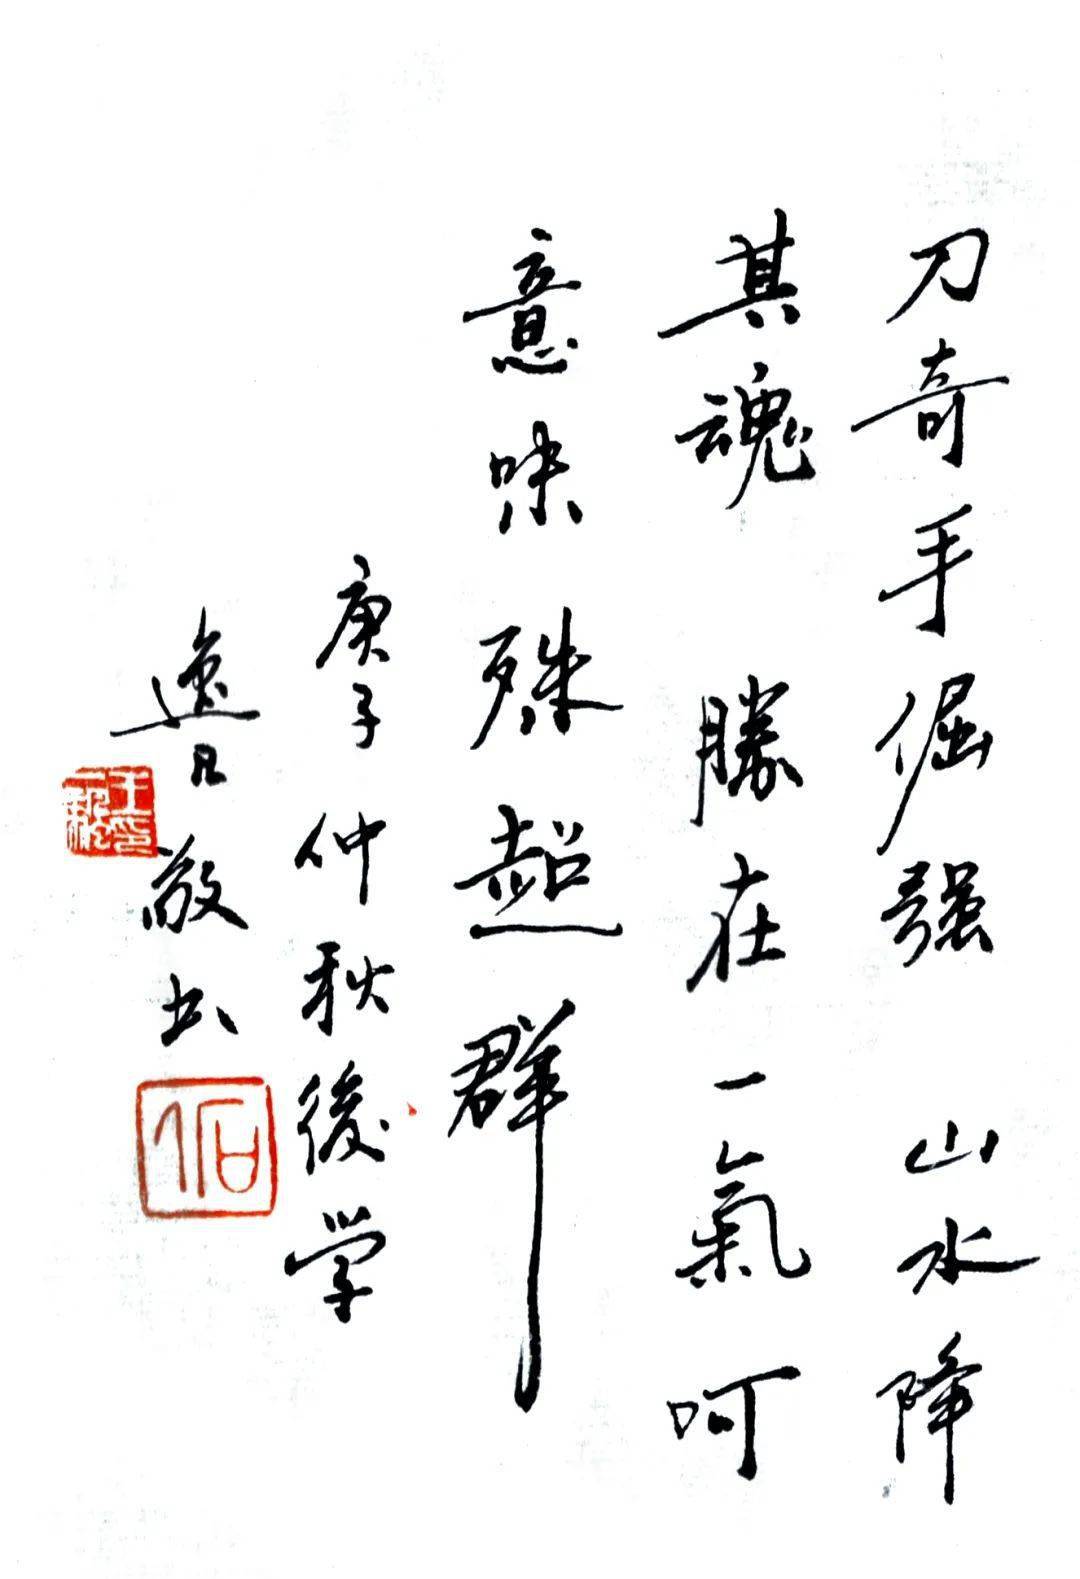 刀奇手倔强 山水降
其魂 勝在一氣呵
意味殊超群
庚子仲秋後学
逸凡敬书